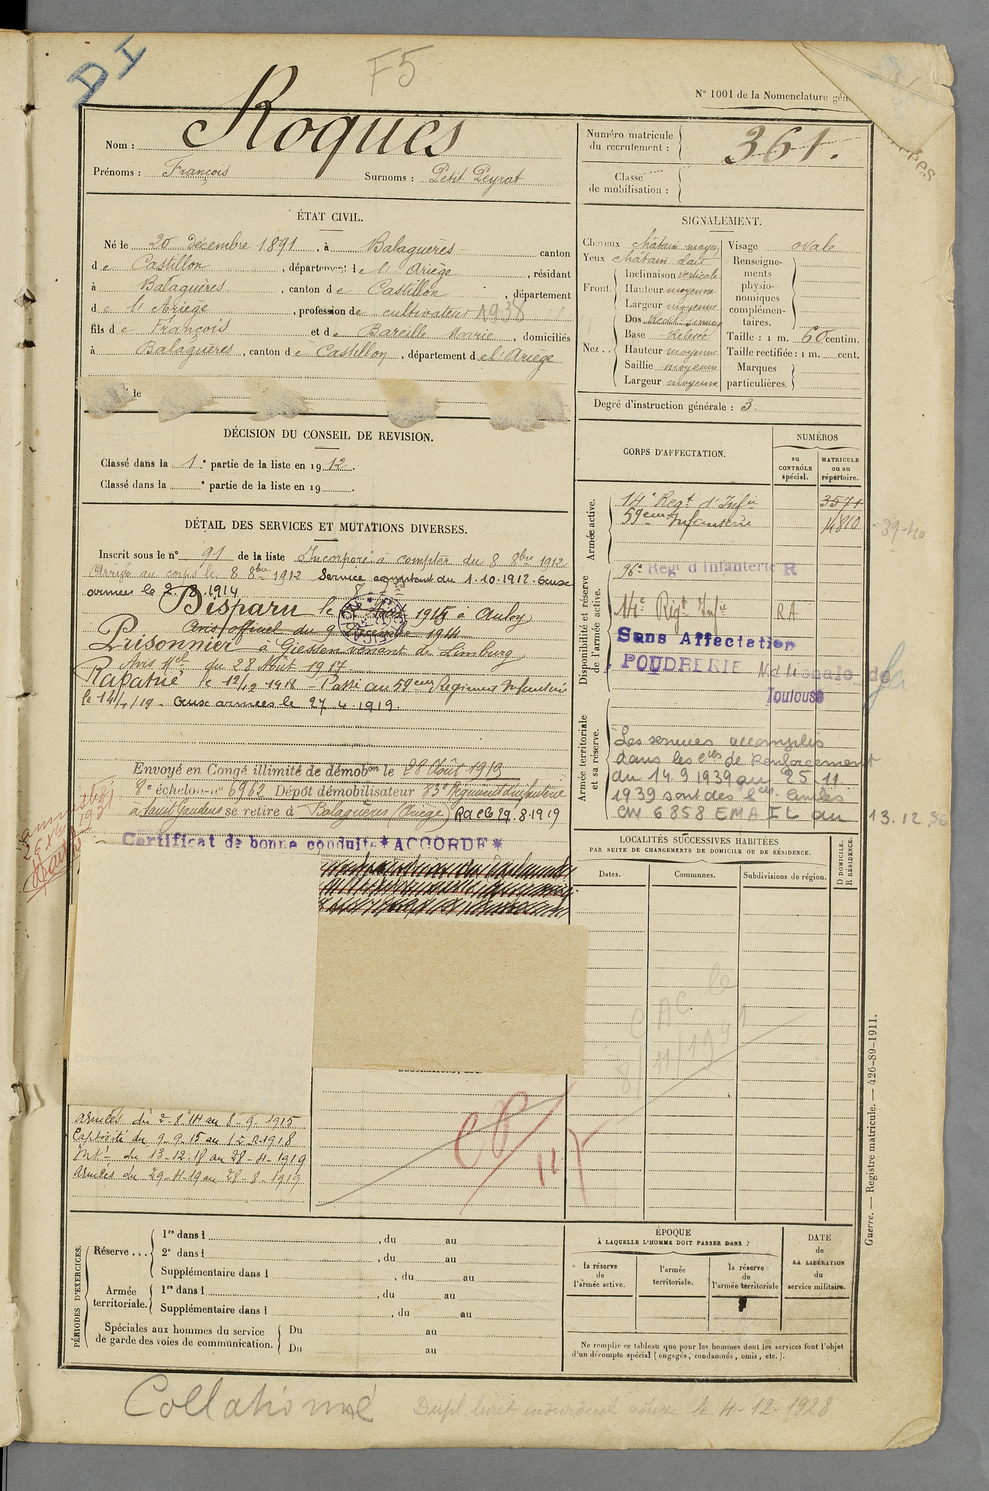 DI
F5
N° 1001 de la Nomenclature gén
Nom : Roques
Prénoms : François Surnoms : Petit Peyrat
Numéro matricule du recrutement : 361.
Classe de mobilisation :
ÉTAT CIVIL.
Né le 20 Décembre 1891, à Balaguères canton
de Castillon, département de l'Ariège, résidant
à Balaguères, canton de Castillon, département
de l'Ariège, profession de cultivateur 1938
fils de François et de Bareille Marie, domiciliés
à Balaguères, canton de Castillon, département de l'Ariège
le
SIGNALEMENT.
Cheveux châtain moyen
Yeux châtain clair
Front
Inclinaison verticale
Hauteur moyenne
Largeur moyenne
Nez
Dos
Base Relevée
Hauteur moyenne
Saillie moyenne
Largeur moyenne
Visage ovale
Renseignements physionomiques complémentaires.
Taille : 1 m. 60 centim.
Taille rectifiée : 1 m. cent.
Marques particulières.
Degré d'instruction générale : 3.
DÉCISION DU CONSEIL DE REVISION.
Classé dans la 1e partie de la liste en 1912.
Classé dans la e partie de la liste en 19 .
DÉTAIL DES SERVICES ET MUTATIONS DIVERSES.
Inscrit sous le n° 91 de la liste Incorporé à compter du 8 8bre 1912
Arrivé au corps le 8 8bre 1912 Service comptant du 1.10.1912. Aux
armées le 2.8.1914
Disparu le 1915 à Auby
Avis officiel du 9 1914
Prisonnier à Giessen venant de Limburg
Avis Mel du 28 Août 1917
Rapatrié le 12/12 1918 Passé au 59eme Régiment Infanterie
le 14/4/19 - Aux armées le 27.4.1919.
Envoyé en Congé illimité de démobon le 28 Août 1919
8e échelon n° 6962 Dépôt démobilisateur 83e Régiment d'infanterie
à Saint Gaudens se retire à Balaguères (Ariège) RdC le 29.8.1919
Certificat de bonne conduite *ACCORDÉ*
armées du 2-8.14 au 8-9-1915
Captivité du 9-9-15 au 12-12-1918
Intr du 13-12-18 au 28-4-1919
armées du 29-4-19 au 28-8-1919
CP
CORPS D'AFFECTATION.
NUMÉROS
au CONTRÔLE spécial.
MATRICULE ou au répertoire.
Armée active.
14e Regt d'Infie 3571
59eme Infanterie 14820
39-40
Disponibilité et réserve de l'armée active.
96e Regt d'Infanterie R
14e Régt Infie RA
Sans Affectation
POUDRERIE Nationale de
Toulouse
Armée territoriale et sa réserve.
Les services accomplis
dans les cies de Renforcement
du 14.9.1939 au 25.11
1939 sont des
CM 6858 EMA IL du 13.12.36
LOCALITÉS SUCCESSIVES HABITÉES
PAR SUITE DE CHANGEMENTS DE DOMICILE OU DE RÉSIDENCE.
Dates. Communes. Subdivisions de région. D DOMICILE. R RÉSIDENCE.
CAC le
8/11/1941
PÉRIODES D'EXERCICES.
Réserve ...
1re dans l , du au
2e dans l , du au
Supplémentaire dans l , du au
Armée territoriale.
1re dans l , du au
Supplémentaire dans l , du au
Spéciales aux hommes du service de garde des voies de communication.
Du au
Du au
ÉPOQUE
À LAQUELLE L'HOMME DOIT PASSER DANS :
la réserve de l'armée active.
l'armée territoriale.
la réserve de l'armée territoriale
DATE de LA LIBÉRATION du service militaire.
Ne remplir ce tableau que pour les hommes dont les services font l'objet
d'un décompte spécial (engagés, condamnés, omis, etc.).
Guerre. — Registre matricule. — 426-89-1911.
Collationné
Dupl. livret individuel le 4-12-1928